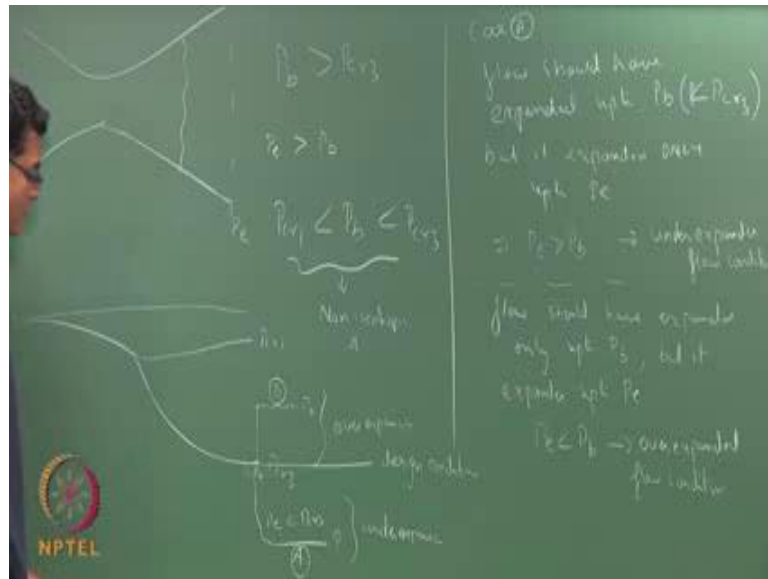 P_b > P_cr3
P_e > P_b
P_e P_cr1 < P_b < P_cr3
P_cr1
overexpansion
P_cr3 design condition
underexpansion
A
Case A
flow should have
expanded upto P_b (<P_cr3)
but it expanded ONLY
upto P_e
⇒ P_e > P_b → underexpanded
flow condition
flow should have expanded
only upto P_b, but it
expanded upto P_e
P_e < P_b → overexpanded
flow condition
NPTEL